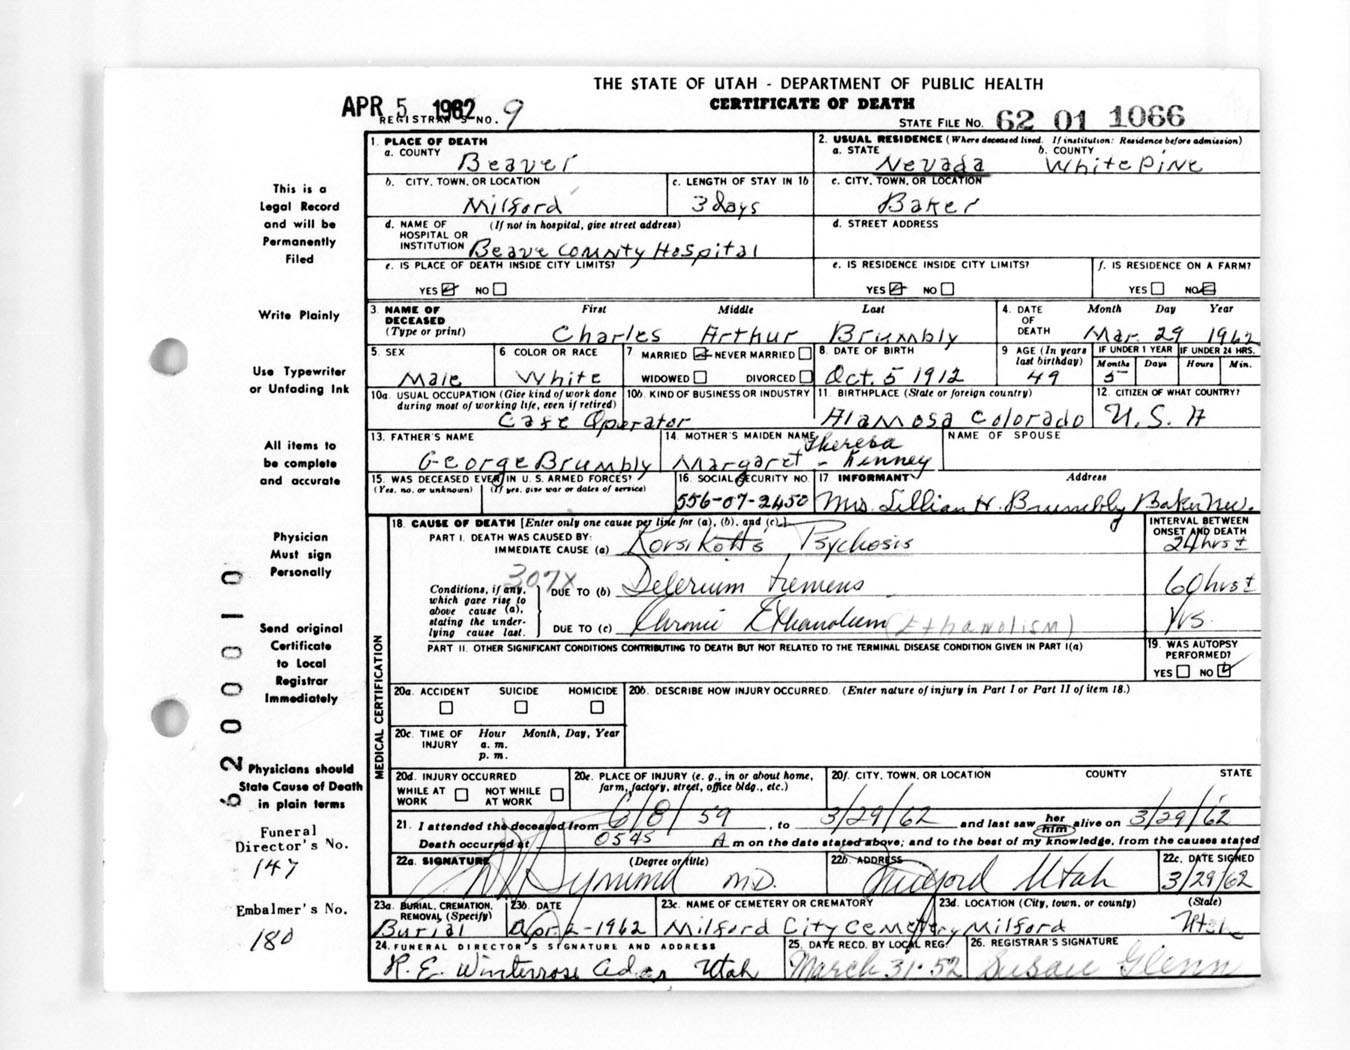 THE STATE OF UTAH - DEPARTMENT OF PUBLIC HEALTH
CERTIFICATE OF DEATH
APR 5 1962
REGISTRAR'S NO. 9
STATE FILE NO. 62 01 1066
This is a
Legal Record
and will be
Permanently
Filed
Write Plainly
Use Typewriter
or Unfading Ink
All items to
be complete
and accurate
Physician
Must sign
Personally
Send original
Certificate
to Local
Registrar
Immediately
Physicians should
State Cause of Death
in plain terms
Funeral
Director's No.
147
Embalmer's No.
180
62000010
1. PLACE OF DEATH
a. COUNTY Beaver
2. USUAL RESIDENCE (Where deceased lived. If institution: Residence before admission)
a. STATE Nevada b. COUNTY White Pine
b. CITY, TOWN, OR LOCATION Milford
c. LENGTH OF STAY IN 1b 3 days
c. CITY, TOWN, OR LOCATION Baker
d. NAME OF HOSPITAL OR INSTITUTION (If not in hospital, give street address) Beave County Hospital
d. STREET ADDRESS
e. IS PLACE OF DEATH INSIDE CITY LIMITS?
YES NO
e. IS RESIDENCE INSIDE CITY LIMITS?
YES NO
f. IS RESIDENCE ON A FARM?
YES NO
3. NAME OF DECEASED (Type or print) First Middle Last
Charles Arthur Brumbly
4. DATE OF DEATH Month Day Year
Mar. 29 1962
5. SEX Male
6 COLOR OR RACE White
7 MARRIED NEVER MARRIED
WIDOWED DIVORCED
8. DATE OF BIRTH Oct. 5 1912
9 AGE (In years last birthday) 49
IF UNDER 1 YEAR Months Days 5
IF UNDER 24 HRS. Hours Min.
10a. USUAL OCCUPATION (Give kind of work done during most of working life, even if retired) Cafe Operator
10b. KIND OF BUSINESS OR INDUSTRY
11. BIRTHPLACE (State or foreign country) Alamosa Colorado
12. CITIZEN OF WHAT COUNTRY? U.S.A
13. FATHER'S NAME George Brumbly
14. MOTHER'S MAIDEN NAME Margaret Theresa - Kinney
NAME OF SPOUSE
15. WAS DECEASED EVER IN U. S. ARMED FORCES?
(Yes, no, or unknown) (If yes, give war or dates of service)
16. SOCIAL SECURITY NO. 556-07-2450
17. INFORMANT Address
Mrs. Lillian H. Brumbly Baker Nev.
18. CAUSE OF DEATH [Enter only one cause per line for (a), (b), and (c).]
INTERVAL BETWEEN ONSET AND DEATH
PART I. DEATH WAS CAUSED BY:
IMMEDIATE CAUSE (a) Korsikoffs Psychosis 24 hrs ±
307X
Conditions, if any, which gave rise to above cause (a), stating the underlying cause last.
DUE TO (b) Delerium tremens 60 hrs ±
DUE TO (c) Chronic Ethanolism (Ethanolism) yrs.
PART II. OTHER SIGNIFICANT CONDITIONS CONTRIBUTING TO DEATH BUT NOT RELATED TO THE TERMINAL DISEASE CONDITION GIVEN IN PART I(a)
19. WAS AUTOPSY PERFORMED?
YES NO
MEDICAL CERTIFICATION
20a. ACCIDENT SUICIDE HOMICIDE
20b. DESCRIBE HOW INJURY OCCURRED. (Enter nature of injury in Part I or Part II of item 18.)
20c. TIME OF INJURY Hour Month, Day, Year
a. m.
p. m.
20d. INJURY OCCURRED
WHILE AT WORK NOT WHILE AT WORK
20e. PLACE OF INJURY (e. g., in or about home, farm, factory, street, office bldg., etc.)
20f. CITY, TOWN, OR LOCATION COUNTY STATE
21. I attended the deceased from 6/8/59, to 3/29/62 and last saw her him alive on 3/29/62
Death occurred at 0545 A m on the date stated above; and to the best of my knowledge, from the causes stated
22a. SIGNATURE (Degree or title) M.D.
22b. ADDRESS Milford Utah
22c. DATE SIGNED 3/29/62
23a. BURIAL, CREMATION, REMOVAL (Specify) Burial
23b. DATE Apr 2-1962
23c. NAME OF CEMETERY OR CREMATORY Milford City Cemetery
23d. LOCATION (City, town, or county) (State) Milford Utah
24. FUNERAL DIRECTOR'S SIGNATURE AND ADDRESS
R. E. Winterrose Utah
25. DATE RECD. BY LOCAL REG. March 31-52
26. REGISTRAR'S SIGNATURE Susan Glenn